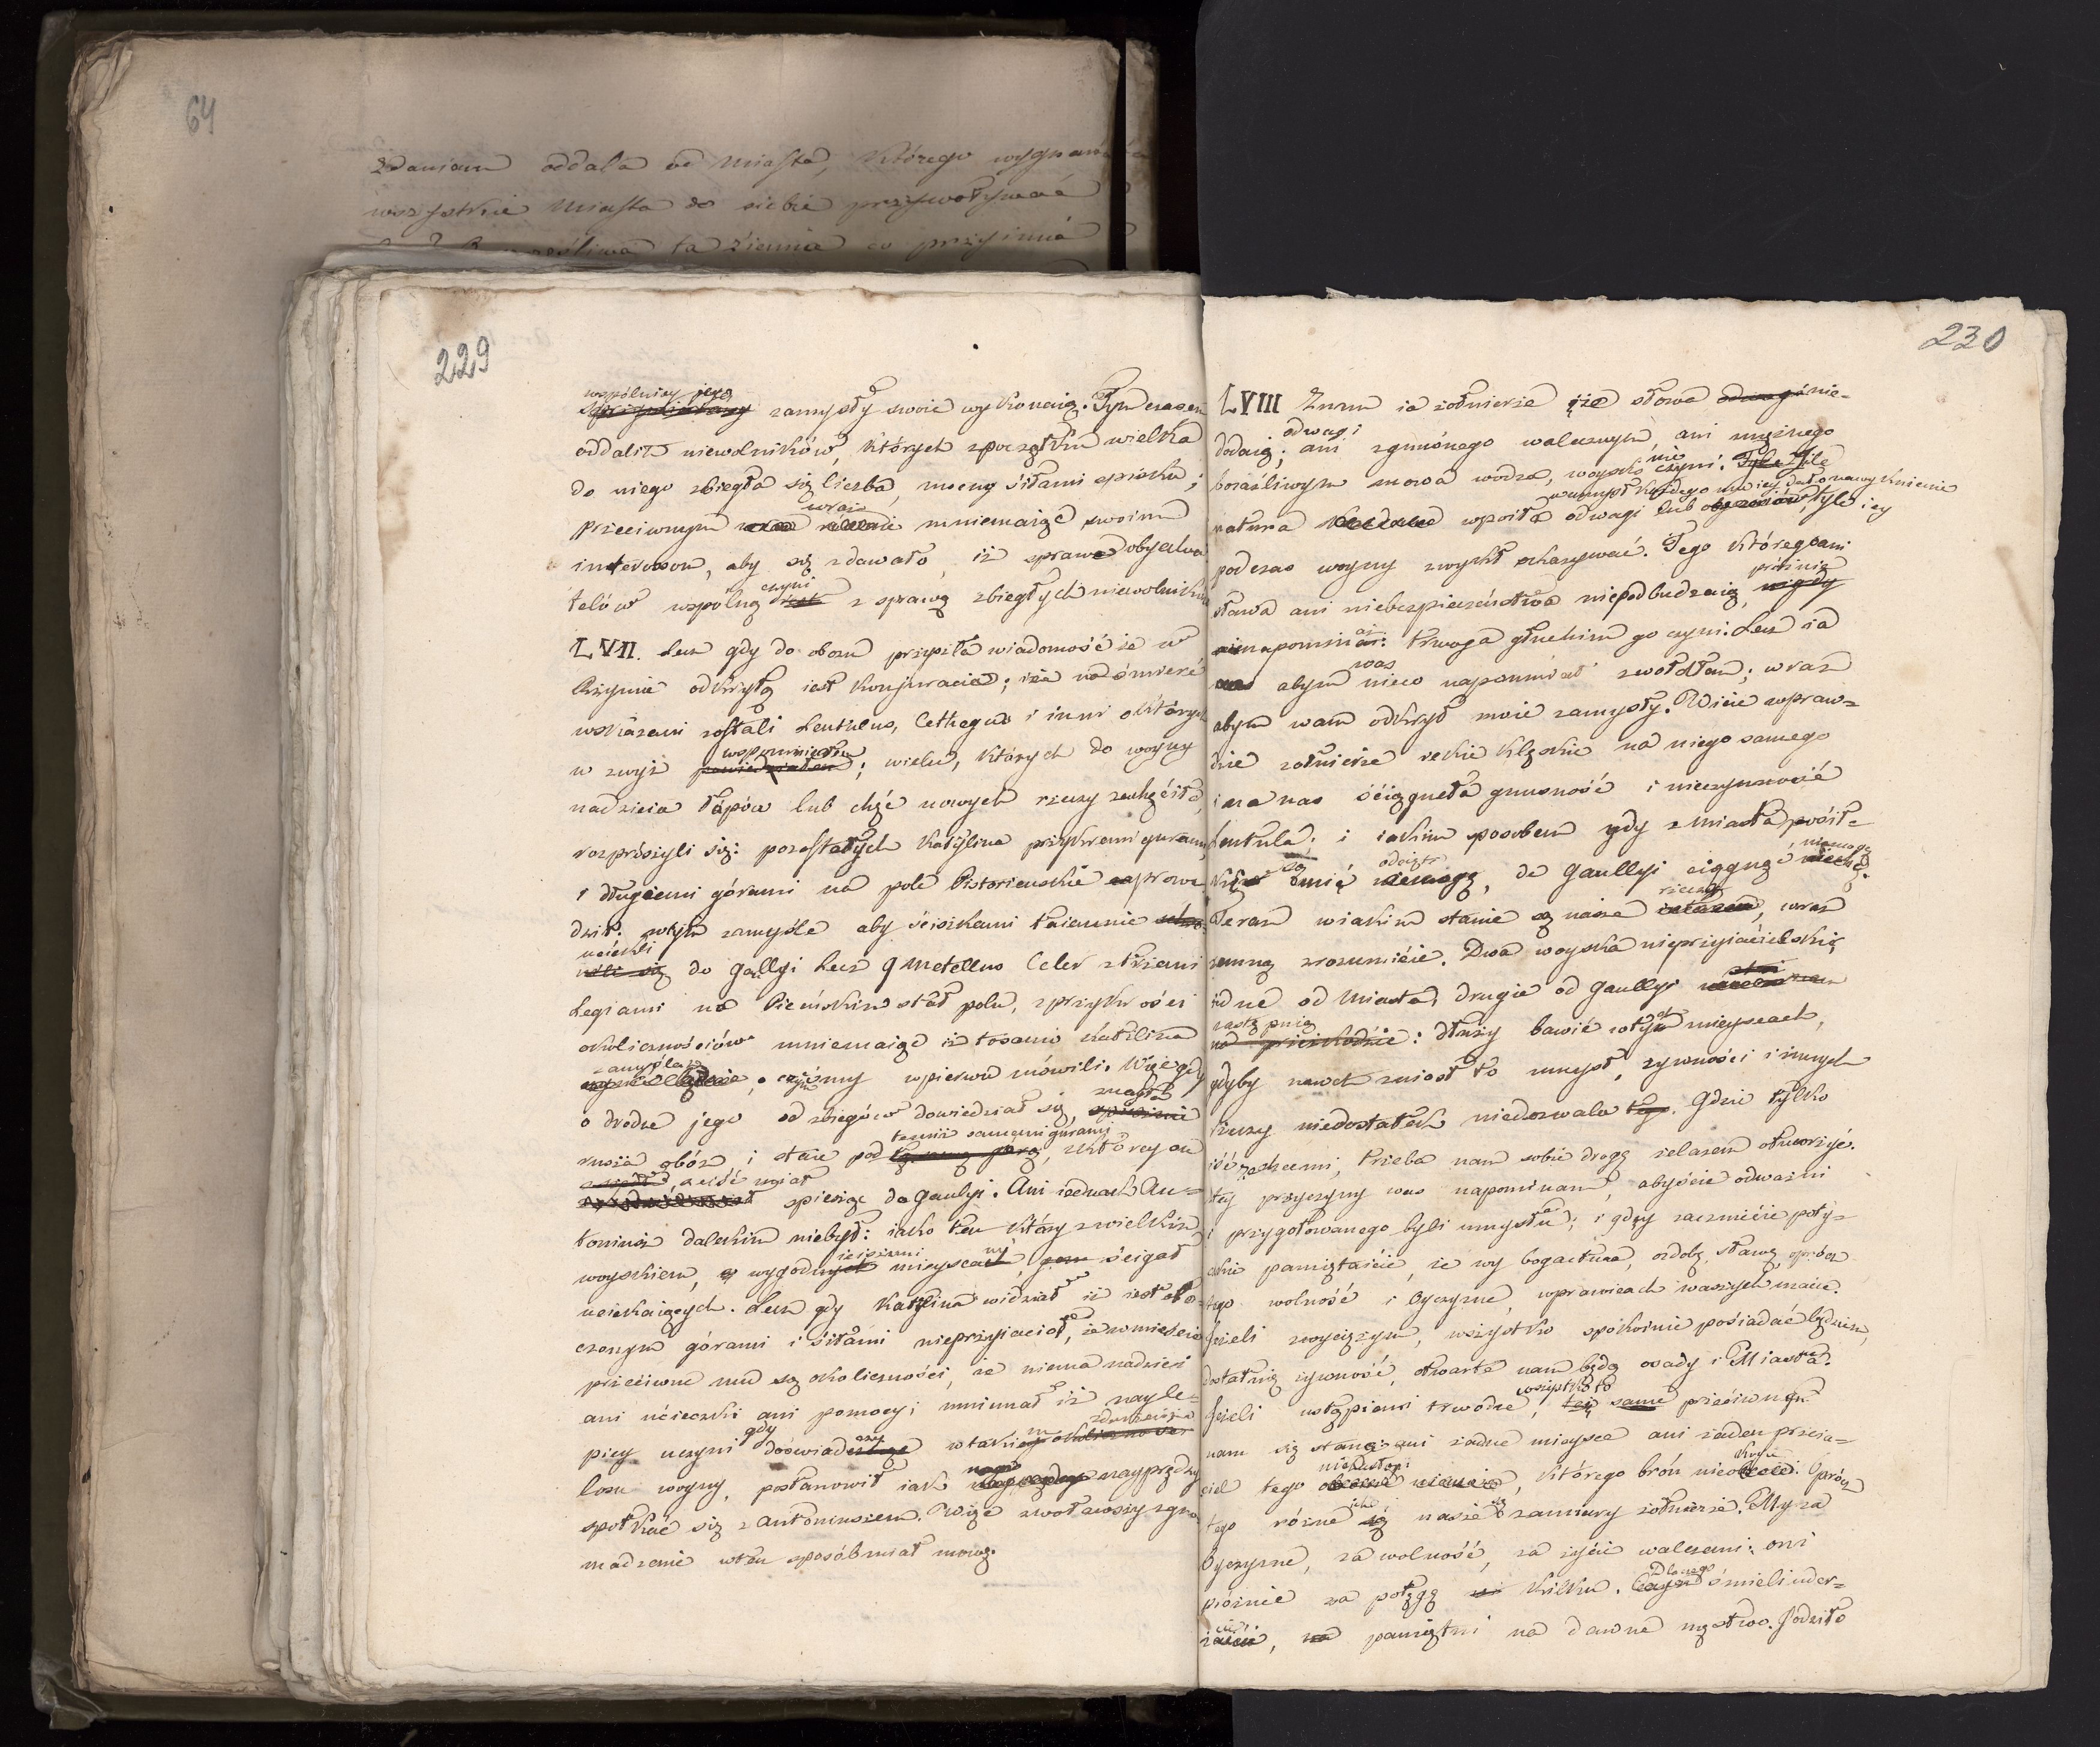 64
zdaniem oddala od Miasta, którego wygnan
wszystkie Miasta do siebie przywoływać
ta ziemia co przyimie
229
wspólnicy jego
zamysły swoie wykonaią. Tym czasem
oddalił niewolników, których zpoczątku wielka
do niego zbiegła się liczba, mocny siłami spisku;
przeciwnym mniemaiąc swoim
interessom, aby się zdawało, iż sprawa obywa
czyni
telów wspólną iest z sprawą zbiegłych niewolników
LVII. Lecz gdy do obozu przyszła wiadomość że w
Rzymie odkrytą iest konjuracia; iże na śmierć
wskazani zostali Lentulus, Cethegus i inni o których
wspomniałem
w zwyż powiedziałem; wielu, których do woyny
nadzieia łupów lub chęć nowych rzeczy zachęciła,
rozproszyli się: pozostałych Katylina przykremi gurami
i długiemi górami na pole Pistorieńskie zaprowa
dził. wtym zamyśle aby ścieszkami taiemnie
uciekli
do Gallyi Lecz Q Metellus Celer z trzema
Legiami na Piceńskim stał polu, z przykrości
okoliczności mniemaiąc iż tosamo Katilina
zamyśla
o czymeśmy wpierwu mówili. Więc gdy
o drodze jego od zbiegów dowiedział się,
rusza obóz i staie pod
temiż samemi górami
, z których on
zeiść miał
spiesząc do Gaulyi. Ani iednak An=
toniusz dalekim niebył: iako ten który z wielkim
woyskiem, wygodnych mieyscach, ścigał
uciekaiących. Lecz gdy Katylina widział iż iest oto=
czonym górami i siłami nieprzyiaciół, że wmieście
przeciwne mu są okoliczności, że niema nadziei
ani ucieczki ani pomocy; mniemał iż nayle=
piey uczyni gdy doświadczy wtakiey okolicznosci
losu woyny, postanowił iak nayprędzey
spotkać się z Antoniuszem. Więc zwoławszy zgro
madzenie wten sposób miał mowę.
230
LVIII Znam ia żołnierze iże słowa odwagi nie=
odwagi
dodaią; ani zgnuśnego walecznym, ani mężnego
boiaźliwym mowa wodza, woysko nie czyni. Tyle ile
wumysł każdego
natura wpoiła odwagi lub , tyle iey
podczas woyny zwykł okazywać. Tego którego ani
sława ani niebezpieczeństwa niepodbudzaią, próżnie
nigdy
napominać: trwoga głuchim go czyni. Lecz ia
was
abym nieco napomniał zwołałem; wraz
abym wam odkrył moie zamysły. Wiecie wpraw=
dzie żołnierze iakie klęskie na niego samego
i na nas ściągneła gnusność i nieczynność
Lentula; i iakim sposobem gdy z Miasta posił=
do Gaullyi ciągnąć niemogę
Teraz wiakim stanie są nasze rzeczy, wraz
zemną zrozumiecie. Dwa woyska nieprzyiacielskie
iedne od Miasta, drugie od Gaullyi stoi
nastąpnią
na przeszkodzie: dłużey bawić wtych mieyscach,
gdyby nawet zniosł to umysł, żywności i innych
rzeczy niedostatek niedozwala tego. Gdzie tylko
iść zechcemy, trzeba nam sobie drogę żelazem otworzyć.
tey przyczyny was napominam, abyście odważni
i przygotowanego byli umysłu; i gdy zaczniecie poty=
ckie pamiętaicie, że wy bogactwa, ozdobę, sławę, oprócz
tego wolność i Oyczyznę, wprawicach waszych macie.
Jeżeli zwyciężym, wszystko spokoinie posiadać będziem,
dostatnią żywność, otwarte nam będą osady i Miasta.
wszystko to
Jeżeli ustąpiemy trwodze, też same przeciwnym
nam się staną: ani żadne mieysce ani żaden przyia=
ciel tego , którego broń nieokryie. Oprócz
tego różne są nasze zamiary żołnierze. My za
Oyczyznę, za wolność, za życie walczemy: oni
próżnie za potęgę kilku. Dlaczego śmieli uder=
, pamiętni na dawne męstwo. Godziło